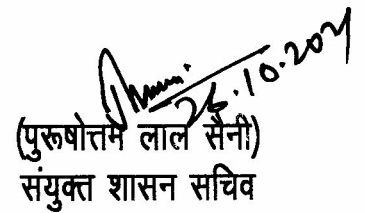 26.10.2021
(पुरूषोत्तम लाल सैनी)
संयुक्त शासन सचिव